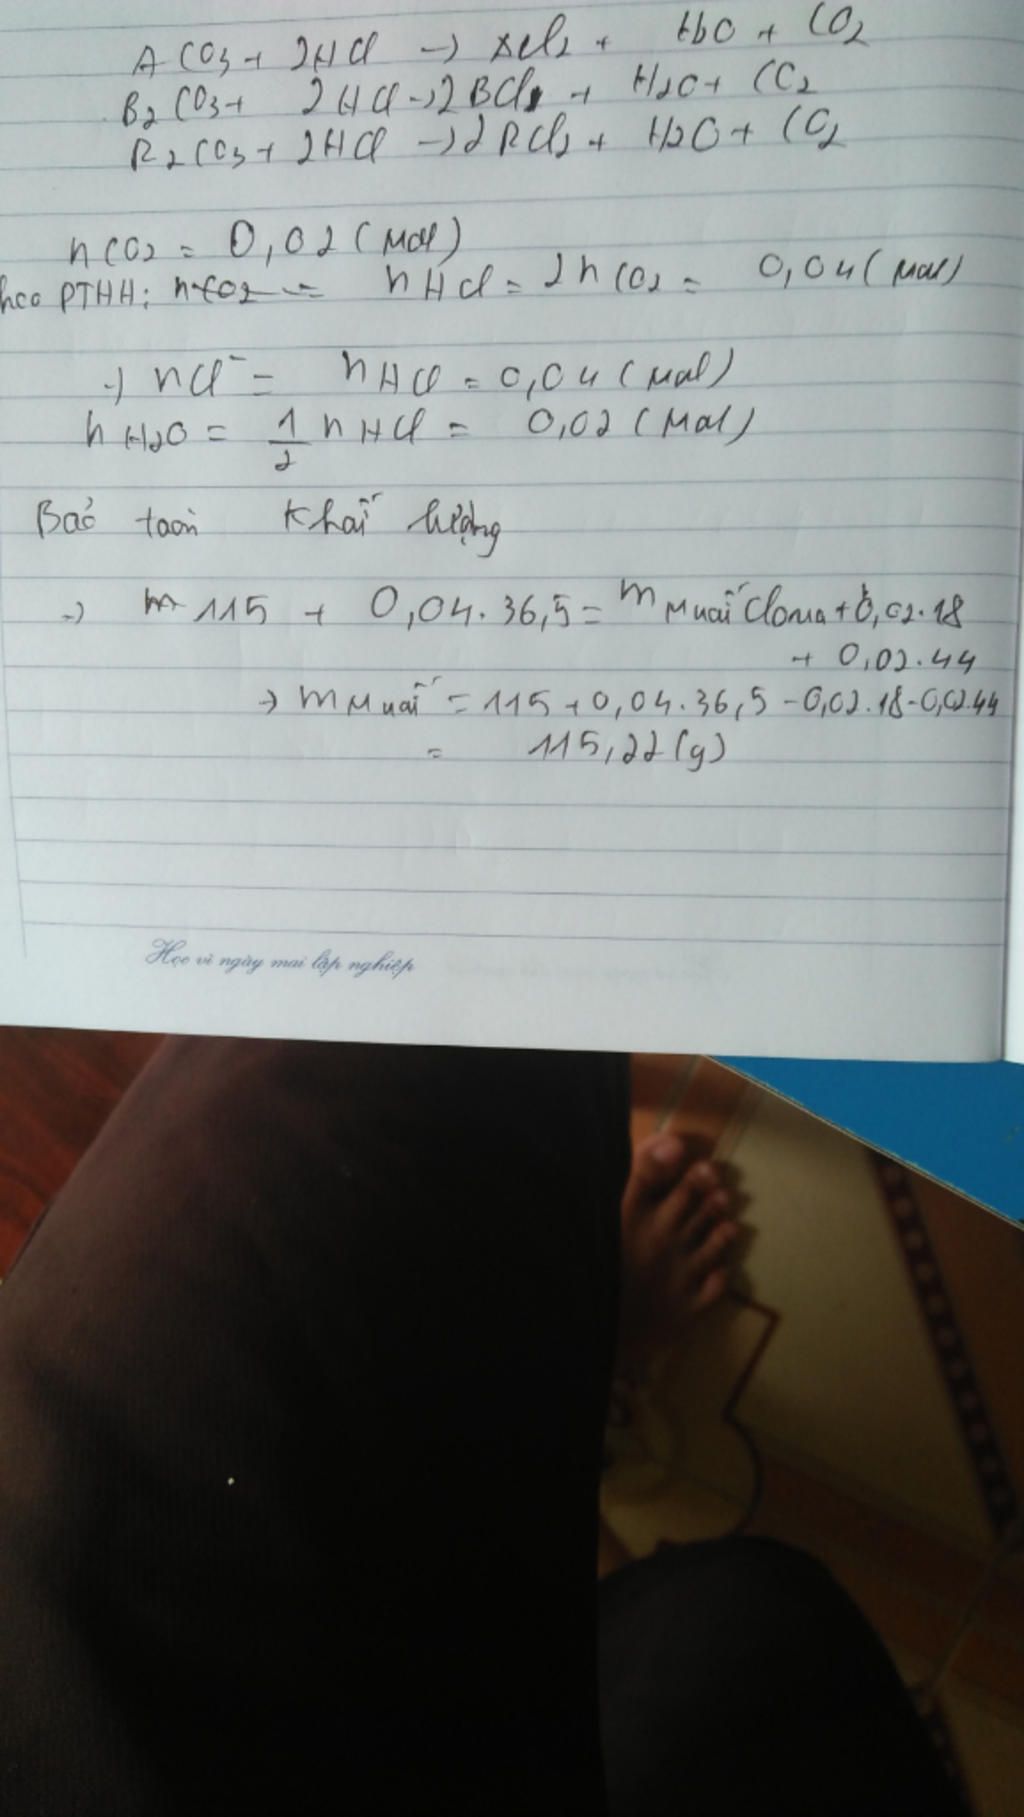 ACO3 + 2HCl → XCl2 + H2O + CO2
B2CO3 + 2HCl → 2BCl + H2O + CO2
R2CO3 + 2HCl → 2RCl2 + H2O + CO2
nCO2 = 0,02 (mol)
heo PTHH: nCO2 = nHCl = 2nCO2 = 0,04 (mol)
→ nCl⁻ = nHCl = 0,04 (mol)
nH2O = 1/2 nHCl = 0,02 (mol)
Bảo toàn khối lượng
→ m 115 + 0,04.36,5 = m muối Clorua + 0,02.18
+ 0,02.44
→ m muối = 115 + 0,04.36,5 - 0,02.18 - 0,02.44
= 115,22 (g)
Học vì ngày mai lập nghiệp